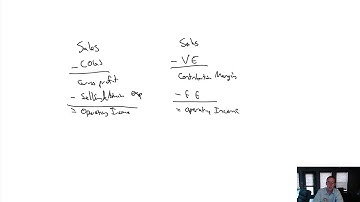 Sales
- COGS
Gross profit
- Selling/Admin exp
= Operating Income
Sales
- VE
Contribution Margin
- FE
= Operating Income